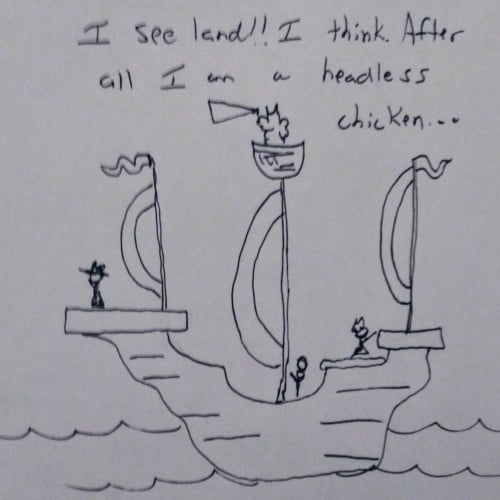 I see land!! I think. After
all I am a headless
chicken...